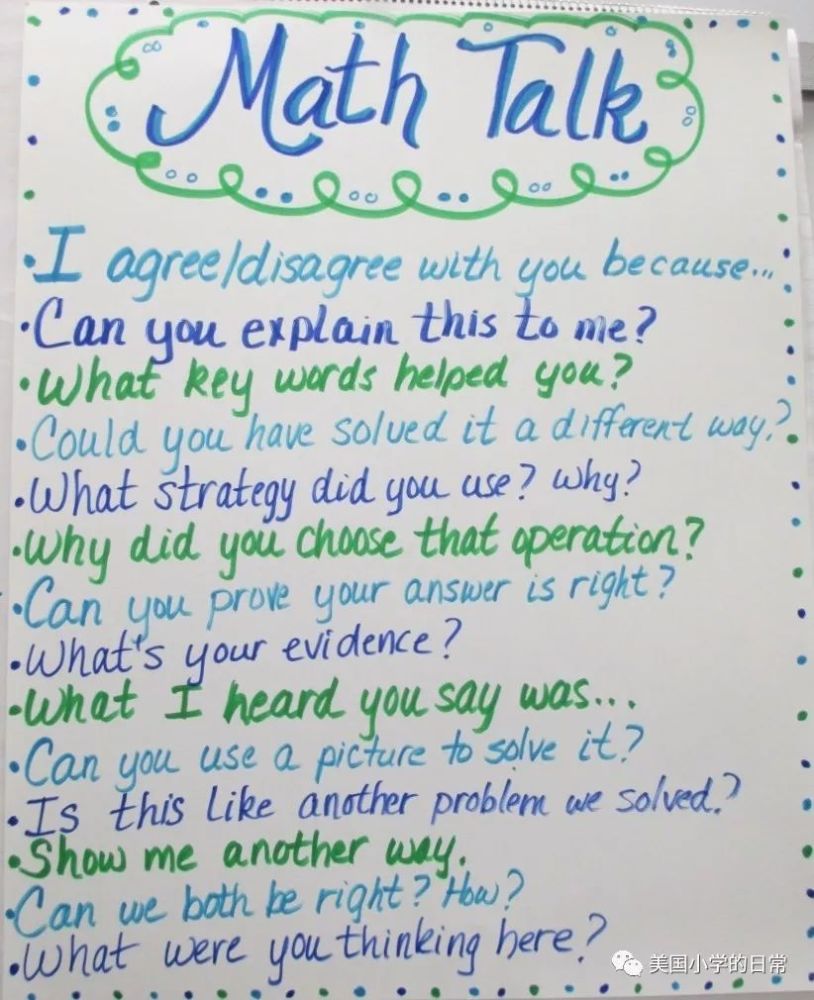 Math Talk
•I agree/disagree with you because...
•Can you explain this to me?
•What key words helped you?
•Could you have solved it a different way?
•What strategy did you use? Why?
•Why did you choose that operation?
•Can you prove your answer is right?
•What's your evidence?
•What I heard you say was...
•Can you use a picture to solve it?
•Is this like another problem we solved?
•Show me another way.
•Can we both be right? How?
•What were you thinking here?
美国小学的日常